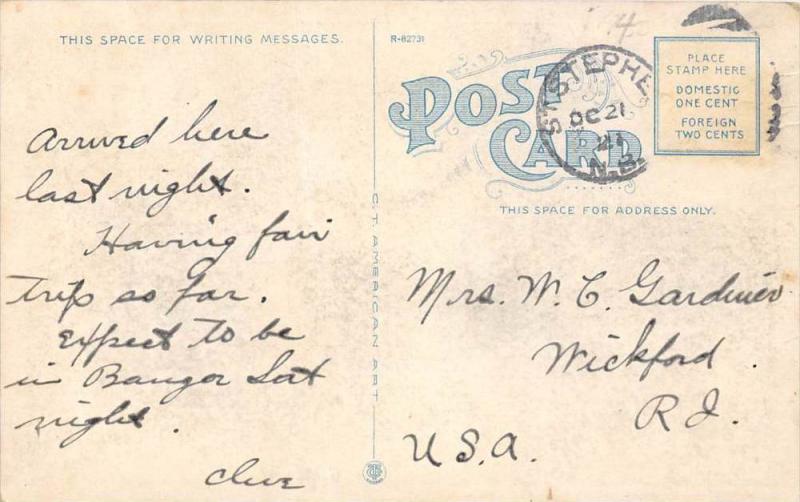 THIS SPACE FOR WRITING MESSAGES.
Arrived here
last night.
Having fair
trip so far.
Expect to be
in Bangor Sat
night.
Clive
C.T. AMERICAN ART
R-82731
4
POST CARD
ST STEPHE
OC 21
21
N.B.
PLACE
STAMP HERE
DOMESTIC
ONE CENT
FOREIGN
TWO CENTS
THIS SPACE FOR ADDRESS ONLY.
Mrs. W. C. Gardiner
Wickford
R.I.
U.S.A.